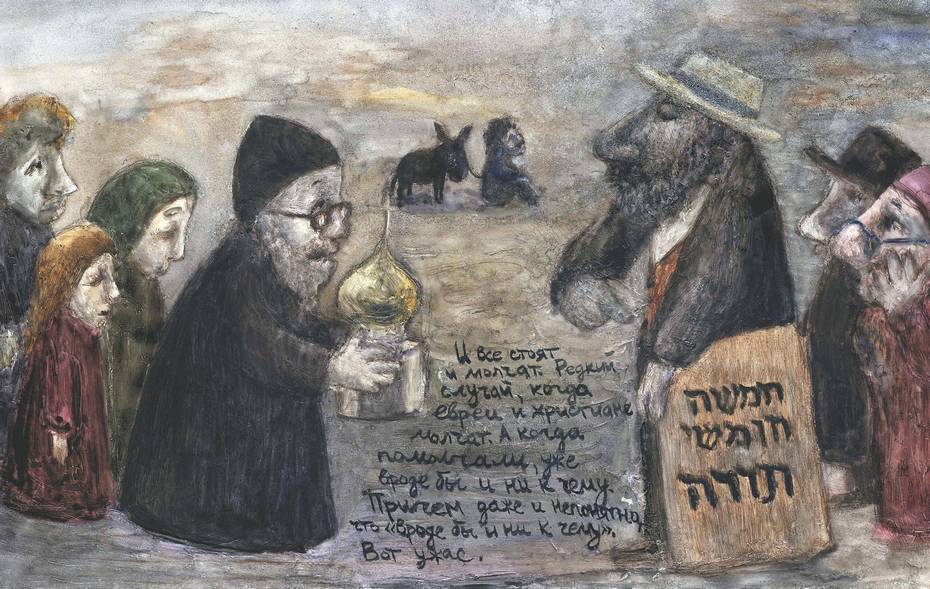 И все стоят
и молчат. Редкий
случай, когда
евреи и христиане
молчат. А когда
помолчали, уже
вроде бы и ни к чему.
Причем даже и непонятно,
что «вроде бы и ни к чему».
Вот ужас.
חמשה
חומשי
תורה